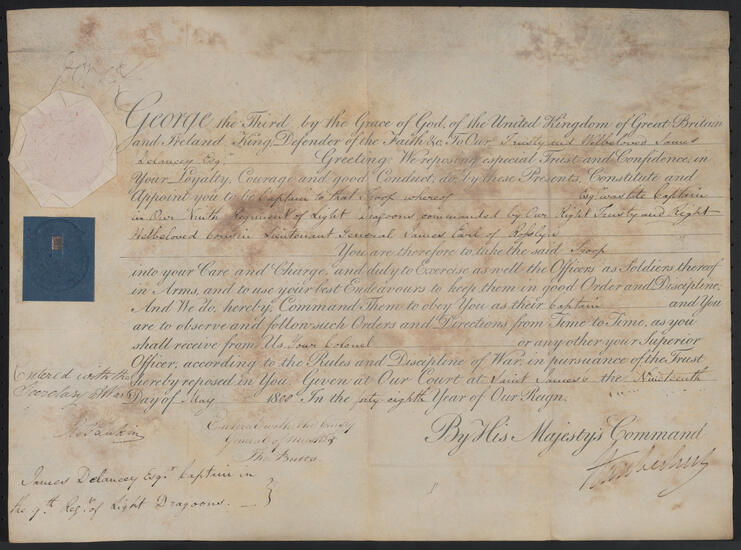 George the Third by the Grace of God, of the United Kingdom of Great Britain
and Ireland King, Defender of the Faith &c. To Our Trusty and Welbeloved James
Delancey Esqr. Greeting: We reposing especial Trust and Confidence in
Your Loyalty, Courage and good Conduct, do by these Presents, Constitute and
Appoint you to be Captain to that Troop whereof Esqr was late Captain
in Our Ninth Regiment of Light Dragoons commanded by Our Right Trusty and Right
Welbeloved Cousin Lieutenant General James Earl of Rosslyn
You are therefore to take the said Troop
into your Care and Charge, and duly to Exercise as well the Officers as Soldiers thereof
in Arms, and to use your best Endeavours to keep them in good Order and Discipline;
And We do, hereby, Command Them to obey You as their Captain and You
are to observe and follow such Orders and Directions from Time to Time, as you
shall receive from Us, Your Colonel or any other your Superior
Officer, according to the Rules and Discipline of War, in pursuance of the Trust
hereby reposed in You. Given at Our Court at Saint James's the Nineteenth
Day of May 1808 In the forty eighth Year of Our Reign.
Entered with the
Secretary at War
Entered with the
General of
By His Majesty's Command
James Delancey Esqr. Captain in
the 9th Regt. of Light Dragoons.